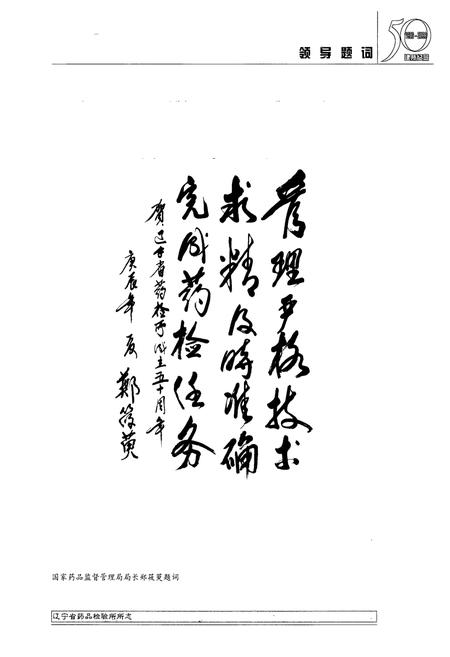 领导题词
50
建所纪念
管理严格技术
求精及时准确
完成药检任务
贺辽宁省药检所成立五十周年
庚辰年夏 郑筱萸
国家药品监督管理局局长郑筱萸题词
辽宁省药品检验所所志